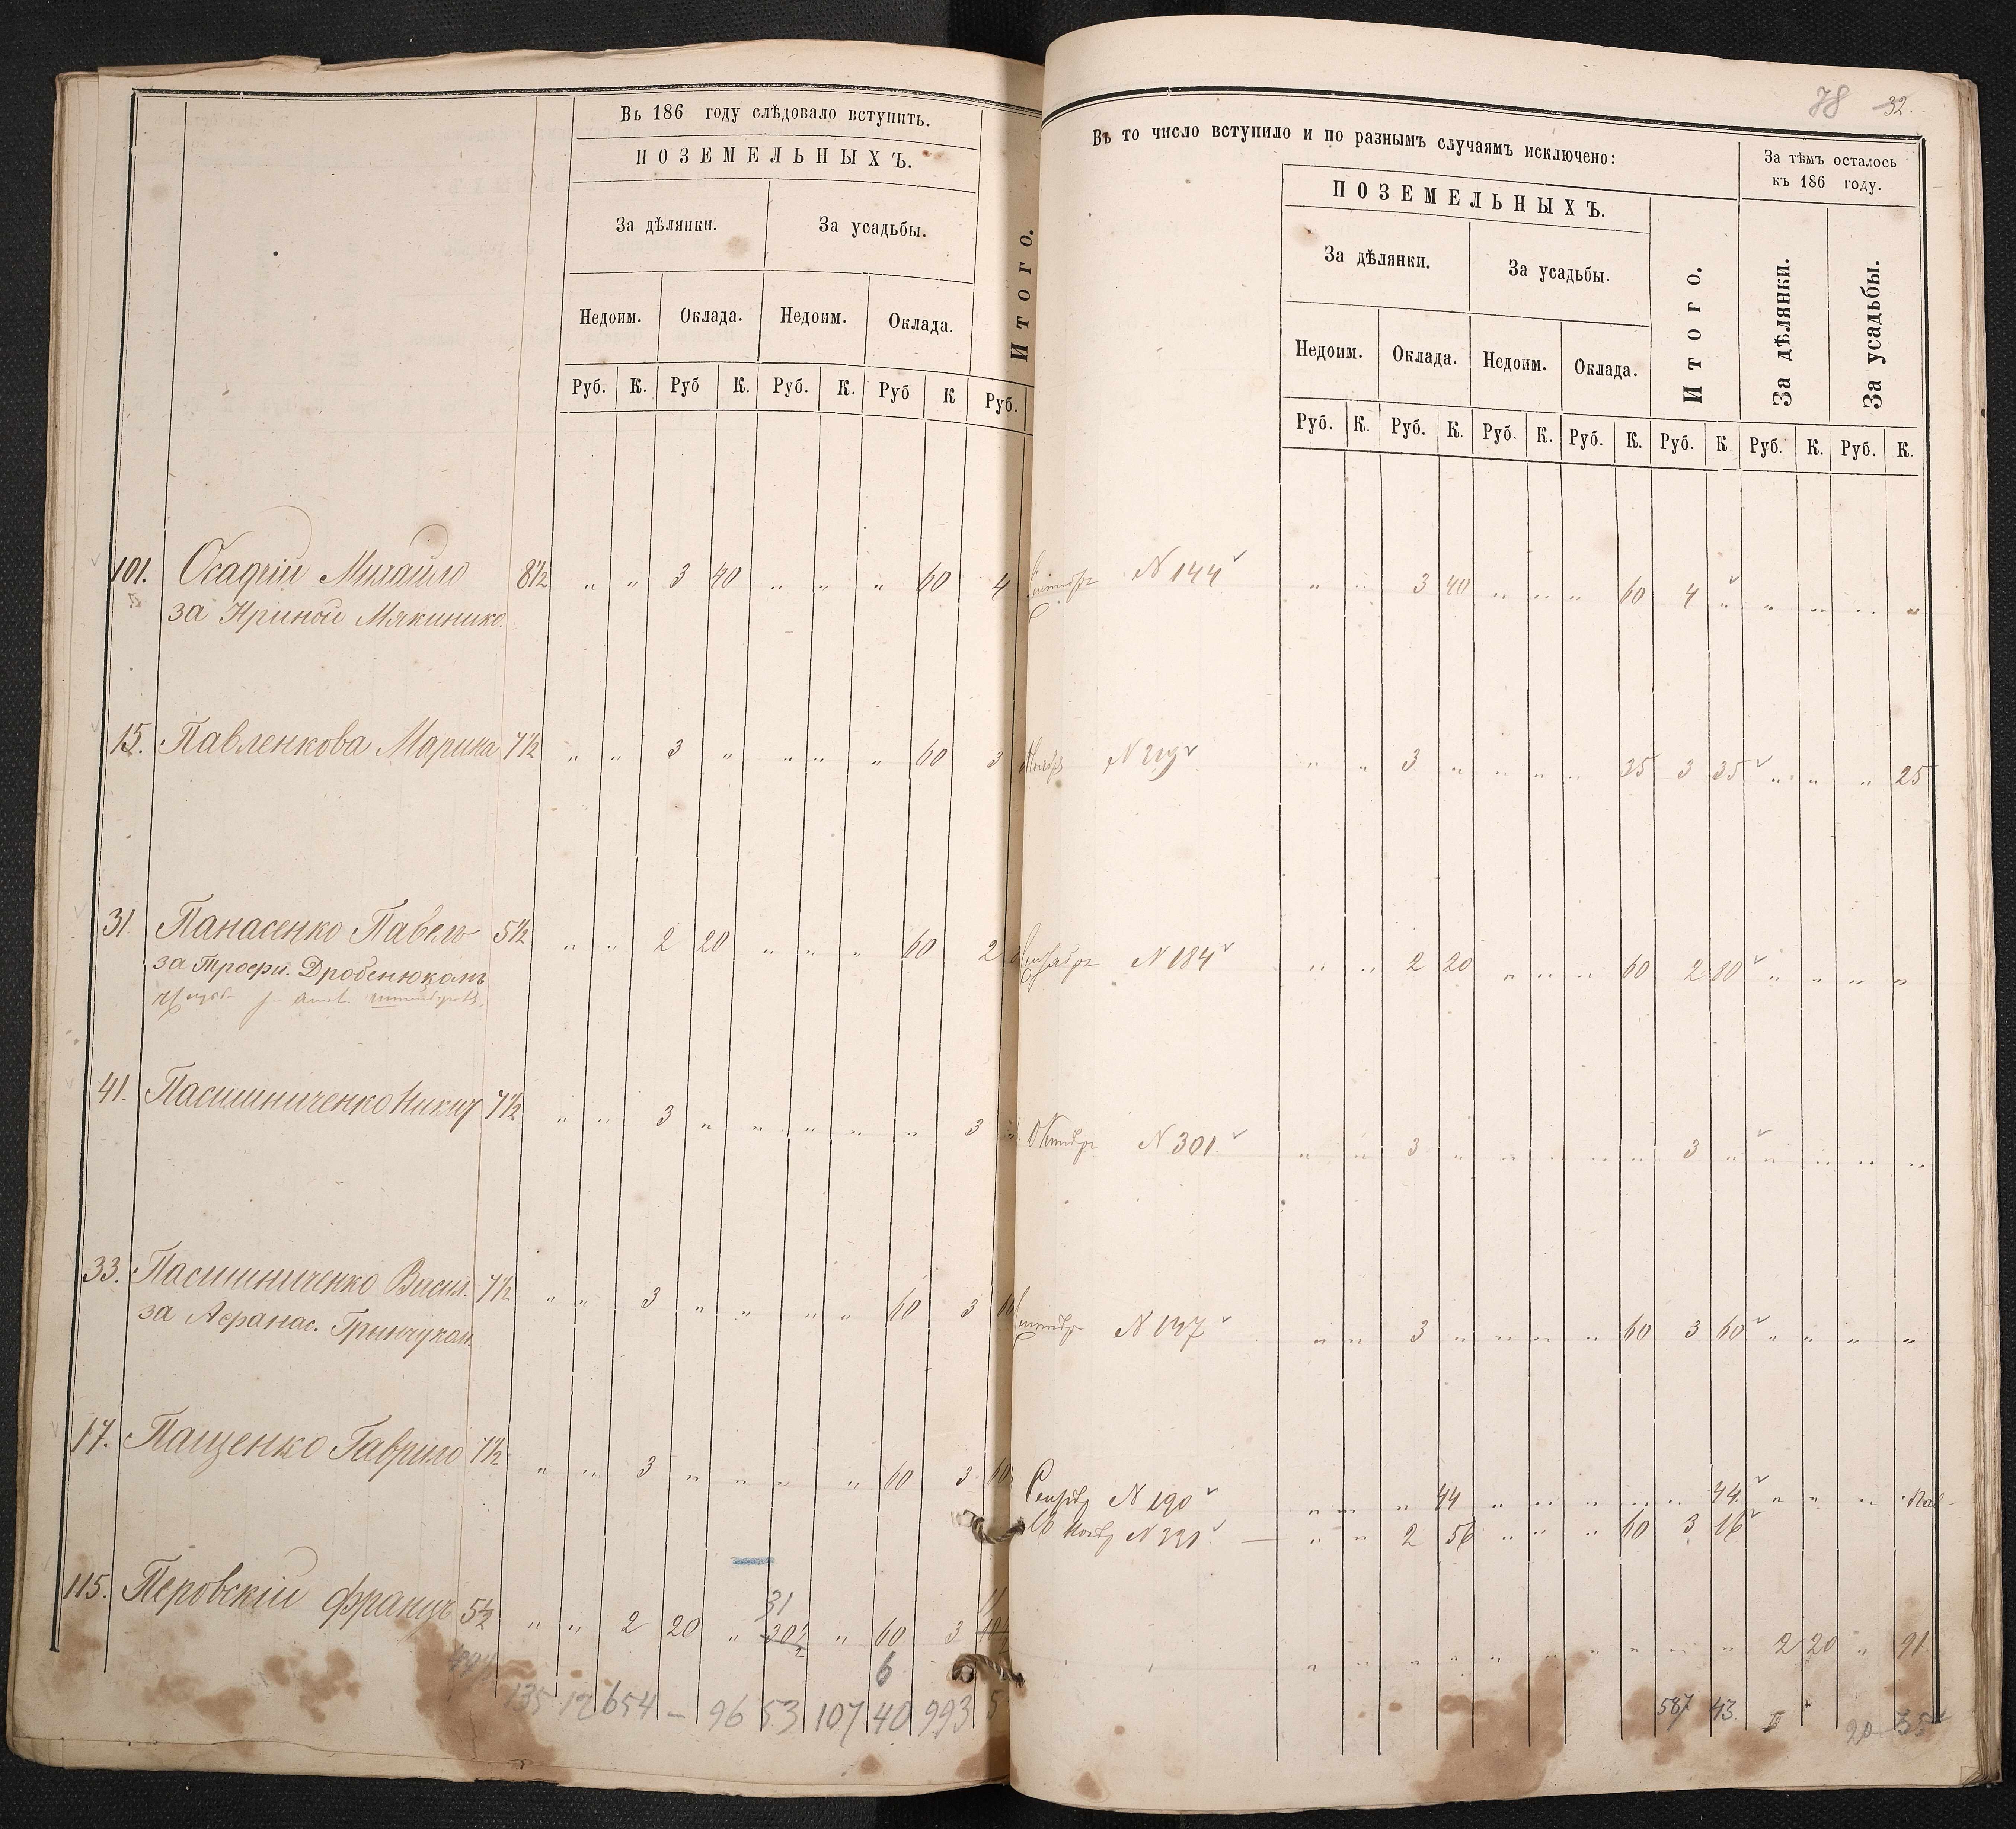 Въ 186 году слѣдовало вступить.
ПОЗЕМЕЛЬНЫХЪ.
За дѣлянки. За усадьбы.
Итого.
Недоим. Оклада. Недоим. Оклада.
Руб. К. Руб К. Руб. К. Руб К Руб.
101. Осадчій Михайло 8½ " " 3 40 " " " 60 4
за Ириной Мякинико.
15. Павленкова Марина 7½ " " 3 " " " " 60 3
31. Панасенко Павело 5½ " " 2 20 " " " 60 2
за Трофи. Дробенюкомъ
41. Пасишниченко Никит 7½ " " 3 " " " " " 3
33. Пасишниченко Васил. 7½ " " 3 " " " " 60 3
за Афанас. Гринчуком
17. Пащенко Гаврило 7½ " " 3 " " " " 60 3 60
115. Перовскій Францъ 5½ " " 2 20 " 31 30½ " 60 3 11
6
135 12 654 — 96 53 107 40 993 5
78 32.
Въ то число вступило и по разнымъ случаямъ исключено:
За тѣмъ осталось
къ 186 году.
ПОЗЕМЕЛЬНЫХЪ.
За дѣлянки. За усадьбы.
Итого.
За дѣлянки.
За усадьбы.
Недоим. Оклада. Недоим. Оклада.
Руб. К. Руб. К. Руб. К. Руб. К. Руб. К Руб. К. Руб. К.
N 144 " " 3 40 " " " 60 4 " " " " "
Ноябр N 219 " " 3 " " " " 35 3 35 " " " 25
Сентябр N 184 " " 2 20 " " " 60 2 80 " " " "
Октябр N 301 " " 3 " " " " " 3 " " " " "
N 147 " " 3 " " " " 60 3 60 " " " "
Сентяб N 190 " " " 44 " " " " " 44 " " "
Нояб N 331 — " " 2 56 " " " 60 3 16
" " " " " " " " " " 2 20 " 91
587 43. 20 35